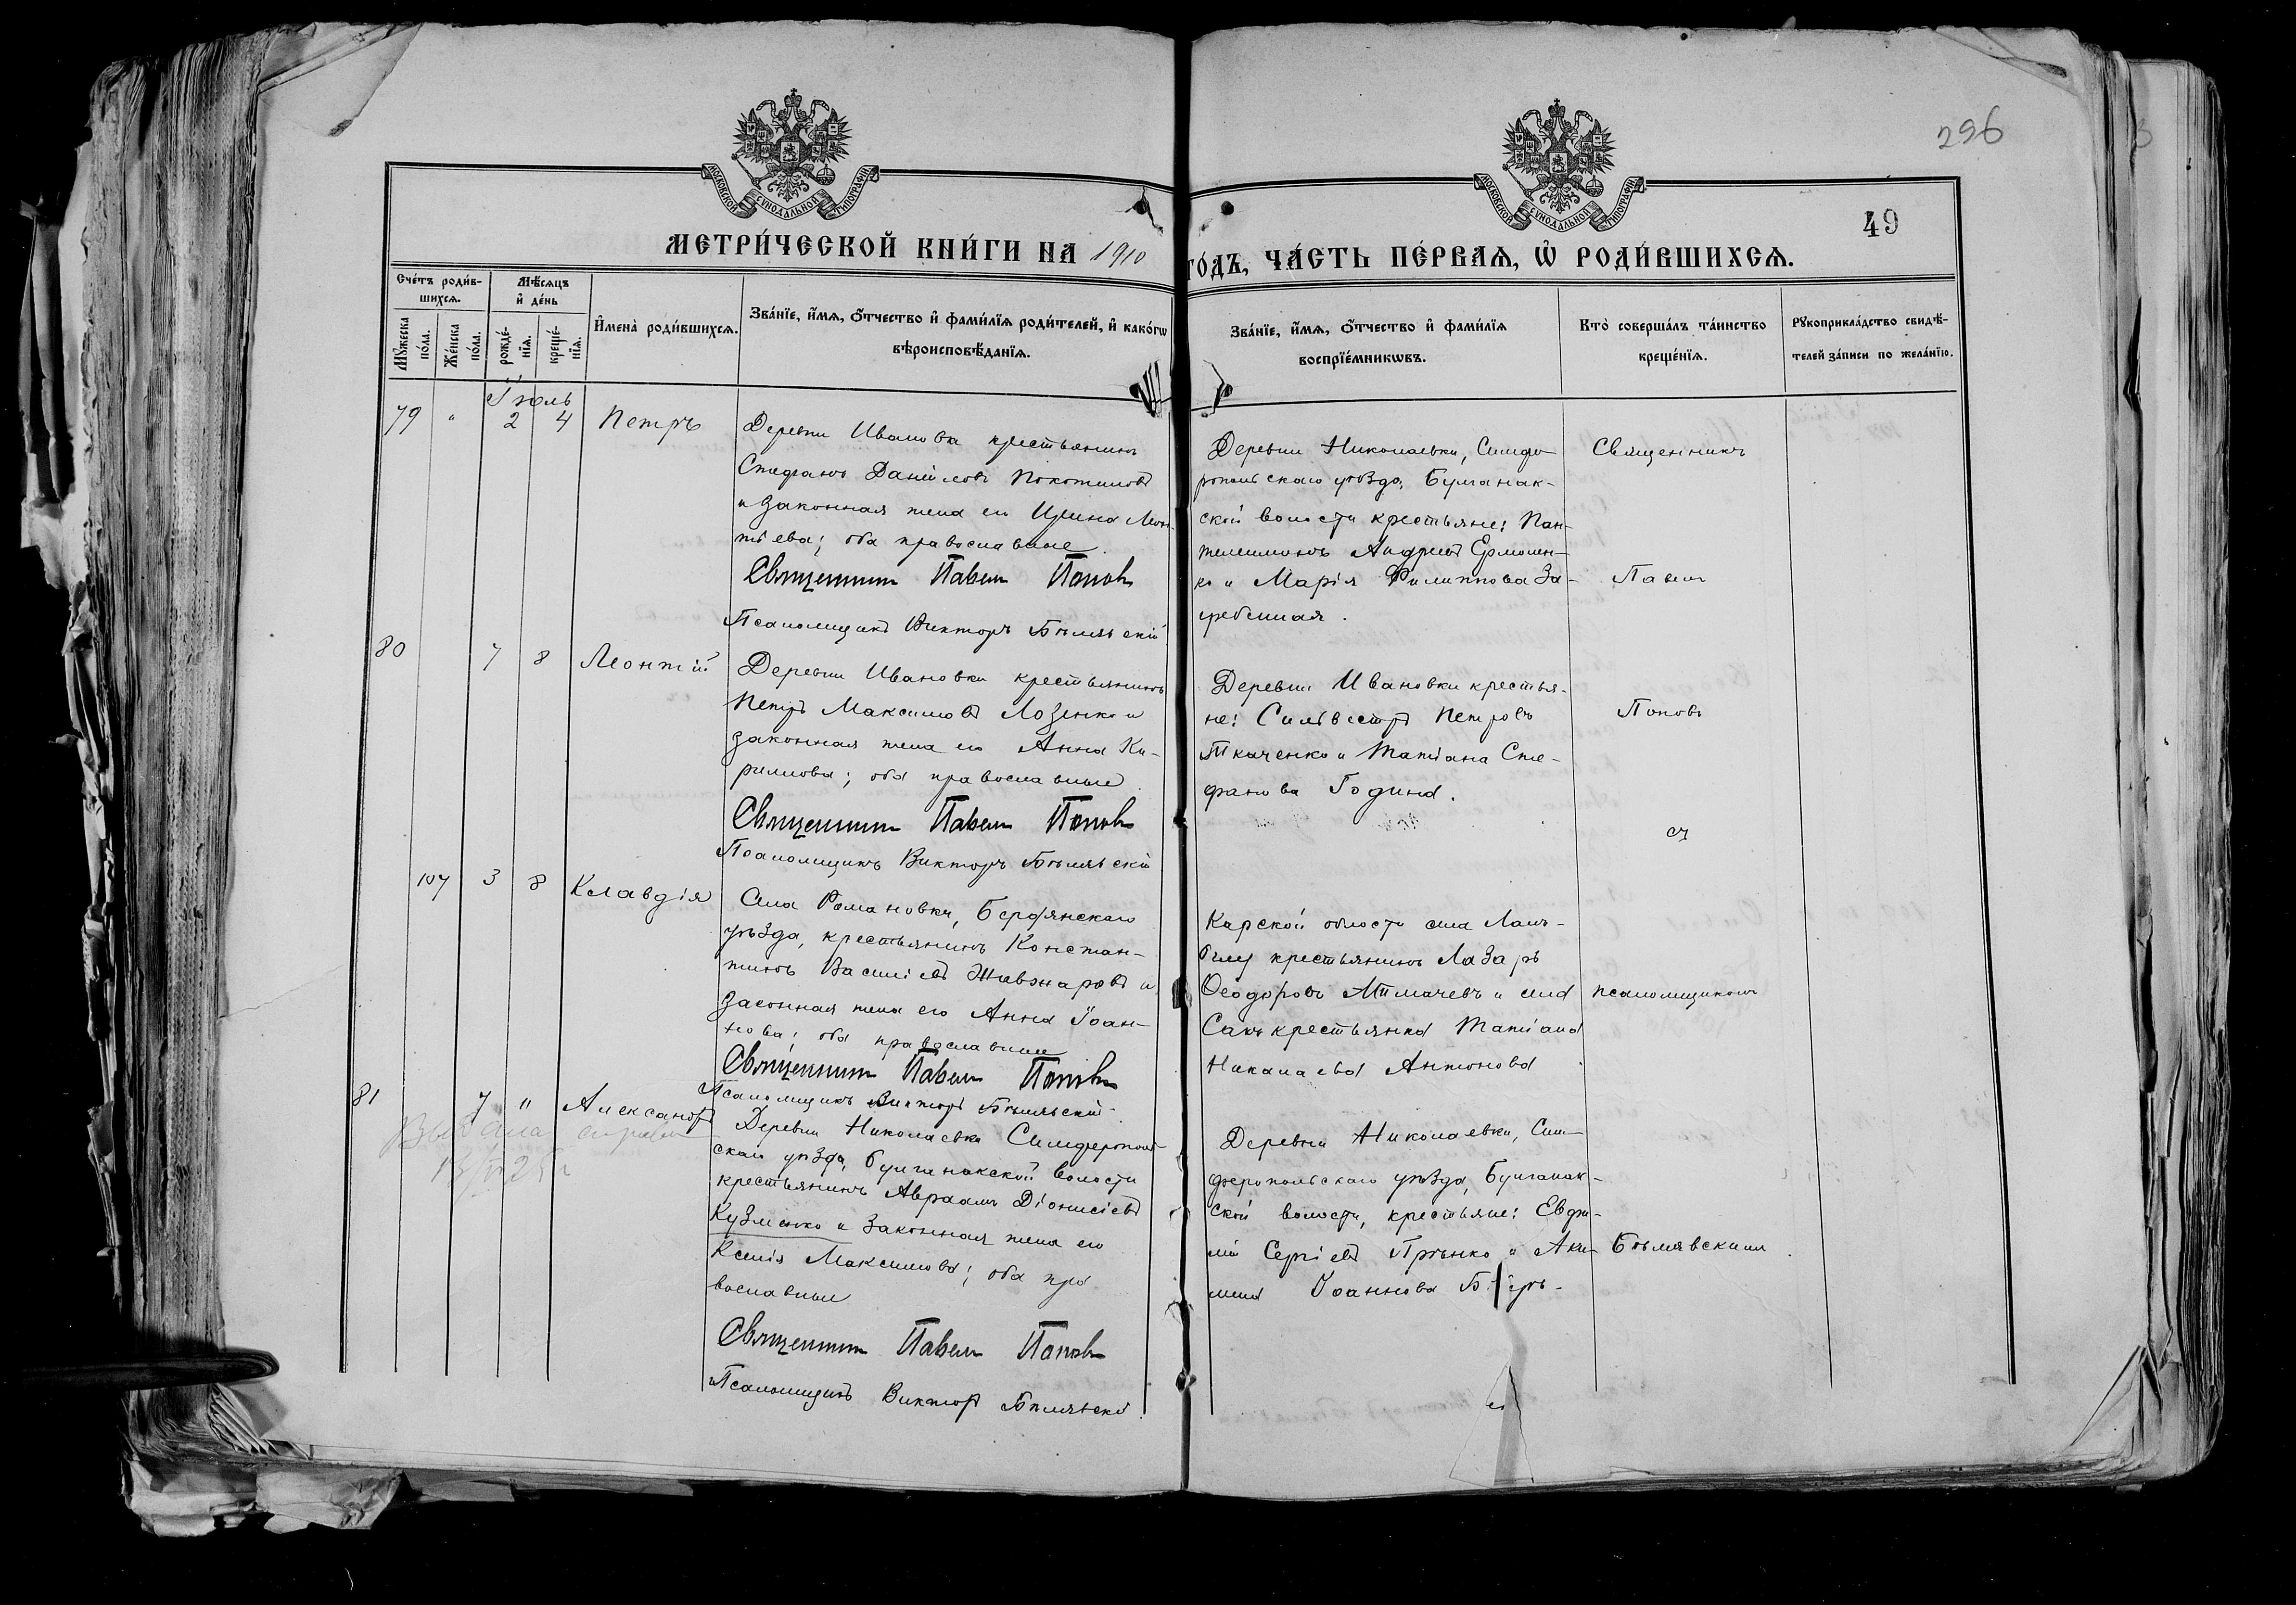 296
49
МОСКОВСКОЙ СУНОДАЛЬНОЙ ТИПОГРАФІИ
МОСКОВСКОЙ СУНОДАЛЬНОЙ ТИПОГРАФІИ
МЕТРИ́ЧЕСКОЙ КНИ́ГИ НА 1910
ГО́ДЪ, ЧА́СТЬ ПЕ́РВАЯ, Ѽ РОДИ́ВШИХСЯ.
Сче́тъ роди́в-
шихся.
Мꙋ́жеска по́ла.
Же́нска по́ла.
Мѣ́сяцъ
и҆ де́нь
рожде́-
нїя.
креще́-
нїя.
И҆мена̀ роди́вшихся.
Зва́нїе, и҆́мя, ѻ҆́тчество и҆ фами́лїя роди́телей, и҆ како́гѡ
вѣроисповѣ́данїя.
Зва́нїе, и҆́мя, ѻ҆́тчество и҆ фами́лїя
воспрїе́мникѡвъ.
Кто̀ соверша́лъ та́инство
креще́нїя.
Рꙋкоприкла́дство свидѣ́-
телей за́писи по жела́нїю.
Іюль
79 " 2 4 Петръ
Деревни Ивановки крестьянинъ
Стефанъ Даниловъ Покотиловъ
и законная жена его Ирина Леон-
тьева; оба православные.
Священникъ Павелъ Поповъ
Псаломщикъ Викторъ Бѣлявскій
Деревни Николаевки, Симфе-
ропольскаго уѣзда, Булганак-
ской волости крестьяне: Пан-
телеимонъ Андреевъ Ермолен-
ко и Марія Филиппова За-
гребенная.
Священникъ
Павелъ
80 7 8 Леонтій
Деревни Ивановки крестьянинъ
Петръ Максимовъ Лозенко и
законная жена его Анна Ки-
риллова; оба православные.
Священникъ Павелъ Поповъ
Псаломщикъ Викторъ Бѣлявскій
Деревни Ивановки крестья-
не: Сильвестръ Петровъ
Ткаченко и Татіана Сте-
фанова Година.
Поповъ
съ
107 3 8 Клавдія
Села Романовки, Бердянскаго
уѣзда, крестьянинъ Констан-
тинъ Василіевъ и
законная жена его Анна Іоан-
нова; оба православные
Священникъ Павелъ Поповъ
Псаломщикъ Викторъ Бѣлявскій
Карской области села
крестьянинъ Лазарь
Ѳеодоровъ и села
Саки крестьянка Татіана
Николаева Антонова
псаломщикомъ
81 7 " Александръ
Выдана справка
Деревни Николаевки Симферополь-
скаго уѣзда, Булганакской волости
крестьянинъ Авраамъ Діонисіевъ
Кузменко и законная жена его
Ксенія Максимова; оба пра
вославные
Священникъ Павелъ Поповъ
Псаломщикъ Викторъ Бѣлявскій
Деревни Николаевки, Сим-
феропольскаго уѣзда, Булганак-
ской волости, крестьяне: Евфи-
мій Сергіевъ и Аки-
лина Іоаннова
Бѣлявскимъ.